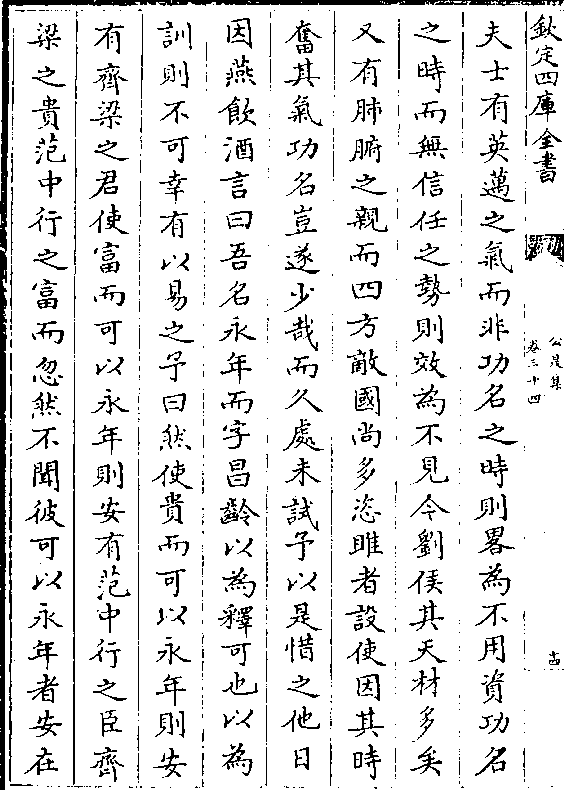 欽定四庫全書
公是集
卷三十四
十四
夫士有英邁之氣而非功名之時則畧為不用資功名
之時而無信任之勢則效為不見今劉侯其天材多矣
又有肺腑之親而四方敵國尚多恣睢者設使因其時
奮其氣功名豈遂少哉而久處未試予以是惜之他日
因燕飲酒言曰吾名永年而字昌齡以為釋可也以為
訓則不可幸有以易之予曰然使貴而可以永年則安
有齊梁之君使富而可以永年則安有范中行之臣齊
梁之貴范中行之富而忽然不聞彼可以永年者安在